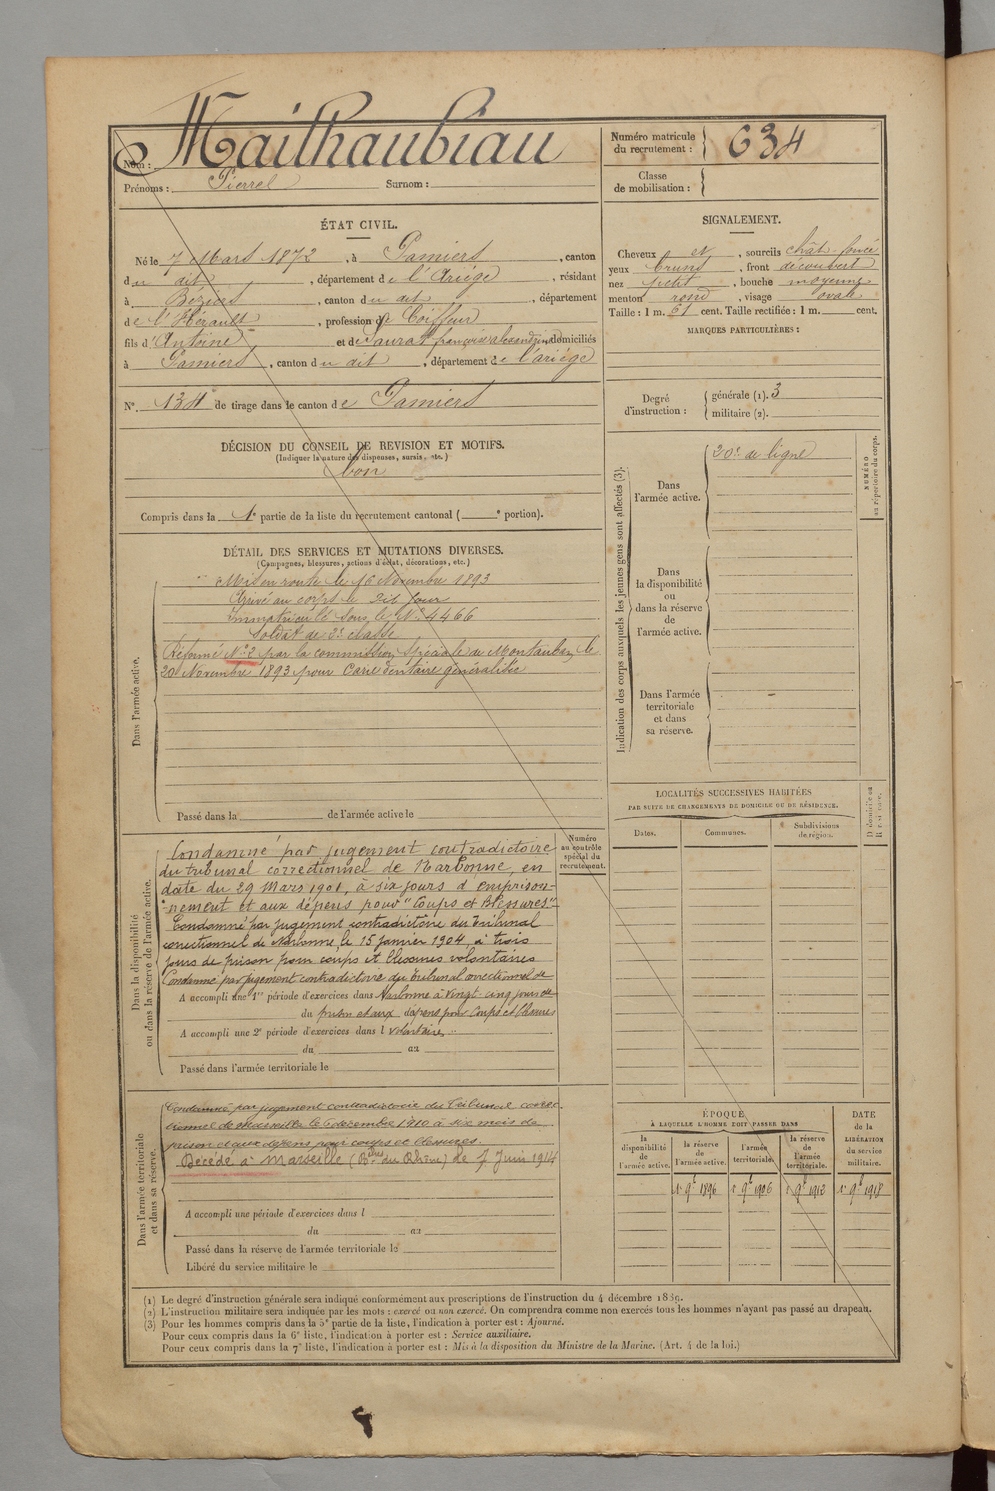 Nom : Mailhaubiau
Prénoms : Pierre Surnom :
Numéro matricule
du recrutement : 634
Classe
de mobilisation :
ÉTAT CIVIL.
Né le 7 Mars 1872, à Pamiers, canton
du dit, département de l'Ariège, résidant
à Béziers, canton du dit, département
de l'Hérault, profession de Coiffeur
fils d'Antoine et de Saurat françoise alexandrine domiciliés
à Pamiers, canton du dit, département de l'ariège
N° 134 de tirage dans le canton de Pamiers
SIGNALEMENT.
Cheveux et, sourcils chât. foncé
yeux bruns, front découvert
nez petit, bouche moyenne
menton rond, visage ovale
Taille : 1 m. 61 cent. Taille rectifiée : 1 m. cent.
MARQUES PARTICULIÈRES :
Degré
d'instruction :
générale (1). 3
militaire (2).
DÉCISION DU CONSEIL DE REVISION ET MOTIFS.
(Indiquer la nature des dispenses, sursis, etc.)
bon
Compris dans la 1e partie de la liste du recrutement cantonal ( e portion).
Indication des corps auxquels les jeunes gens sont affectés (3).
Dans
l'armée active.
20e de ligne
NUMÉRO
au répertoire du corps.
Dans
la disponibilité
ou
dans la réserve
de
l'armée active.
Dans l'armée
territoriale
et dans
sa réserve.
DÉTAIL DES SERVICES ET MUTATIONS DIVERSES.
(Campagnes, blessures, actions d'éclat, décorations, etc.)
Dans l'armée active.
Mis en route le 16 Novembre 1893
Arrivé au corps le dit jour
Immatriculé sous le N° 4466
Soldat de 2e classe
Réformé N° 2 par la commission spéciale de Montauban le
20 Novembre 1893 pour Carie dentaire généralisée
Passé dans la de l'armée active le
LOCALITÉS SUCCESSIVES HABITÉES
PAR SUITE DE CHANGEMENTS DE DOMICILE OU DE RÉSIDENCE.
Dates. Communes. Subdivisions
de région.
Numéro
au contrôle
spécial du
recrutement.
Dans la disponibilité
ou dans la réserve de l'armée active.
Condamné par jugement contradictoire
du tribunal correctionnel de Narbonne, en
date du 29 Mars 1901, à six jours d'emprison-
nement et aux dépens pour "Coups et Blessures"
Condamné par jugement contradictoire du Tribunal
correctionnel de Narbonne, le 15 janvier 1904, à trois
jours de prison pour coups et blessures volontaires
Condamné par jugement contradictoire du Tribunal correctionnel de
A accompli une 1re période d'exercices dans Narbonne à vingt-cinq jours de
du prison et aux dépens pour Coups et blessures
A accompli une 2e période d'exercices dans l volontaires
du au
Passé dans l'armée territoriale le
Dans l'armée territoriale
et dans sa réserve.
Condamné par jugement contradictoire du Tribunal correc-
tionnel de Marseille le 6 décembre 1910 à six mois de
prison et aux dépens pour coups et blessures.
Décédé à Marseille (Bches du Rhône) le 7 Juin 1914
A accompli une période d'exercices dans l
du au
Passé dans la réserve de l'armée territoriale le
Libéré du service militaire le
ÉPOQUE
À LAQUELLE L'HOMME DOIT PASSER DANS
la
disponibilité
de
l'armée active.
la réserve
de
l'armée active.
l'armée
territoriale.
la réserve
de
l'armée
territoriale.
DATE
de la
LIBÉRATION
du service
militaire.
1er 9bre 1896 1er 9bre 1906 1er 9bre 1912 1er 9bre 1918
(1) Le degré d'instruction générale sera indiqué conformément aux prescriptions de l'instruction du 4 décembre 1889.
(2) L'instruction militaire sera indiquée par les mots : exercé ou non exercé. On comprendra comme non exercés tous les hommes n'ayant pas passé au drapeau.
(3) Pour les hommes compris dans la 5e partie de la liste, l'indication à porter est : Ajourné.
Pour ceux compris dans la 6e liste, l'indication à porter est : Service auxiliaire.
Pour ceux compris dans la 7e liste, l'indication à porter est : Mis à la disposition du Ministre de la Marine. (Art. 4 de la loi.)